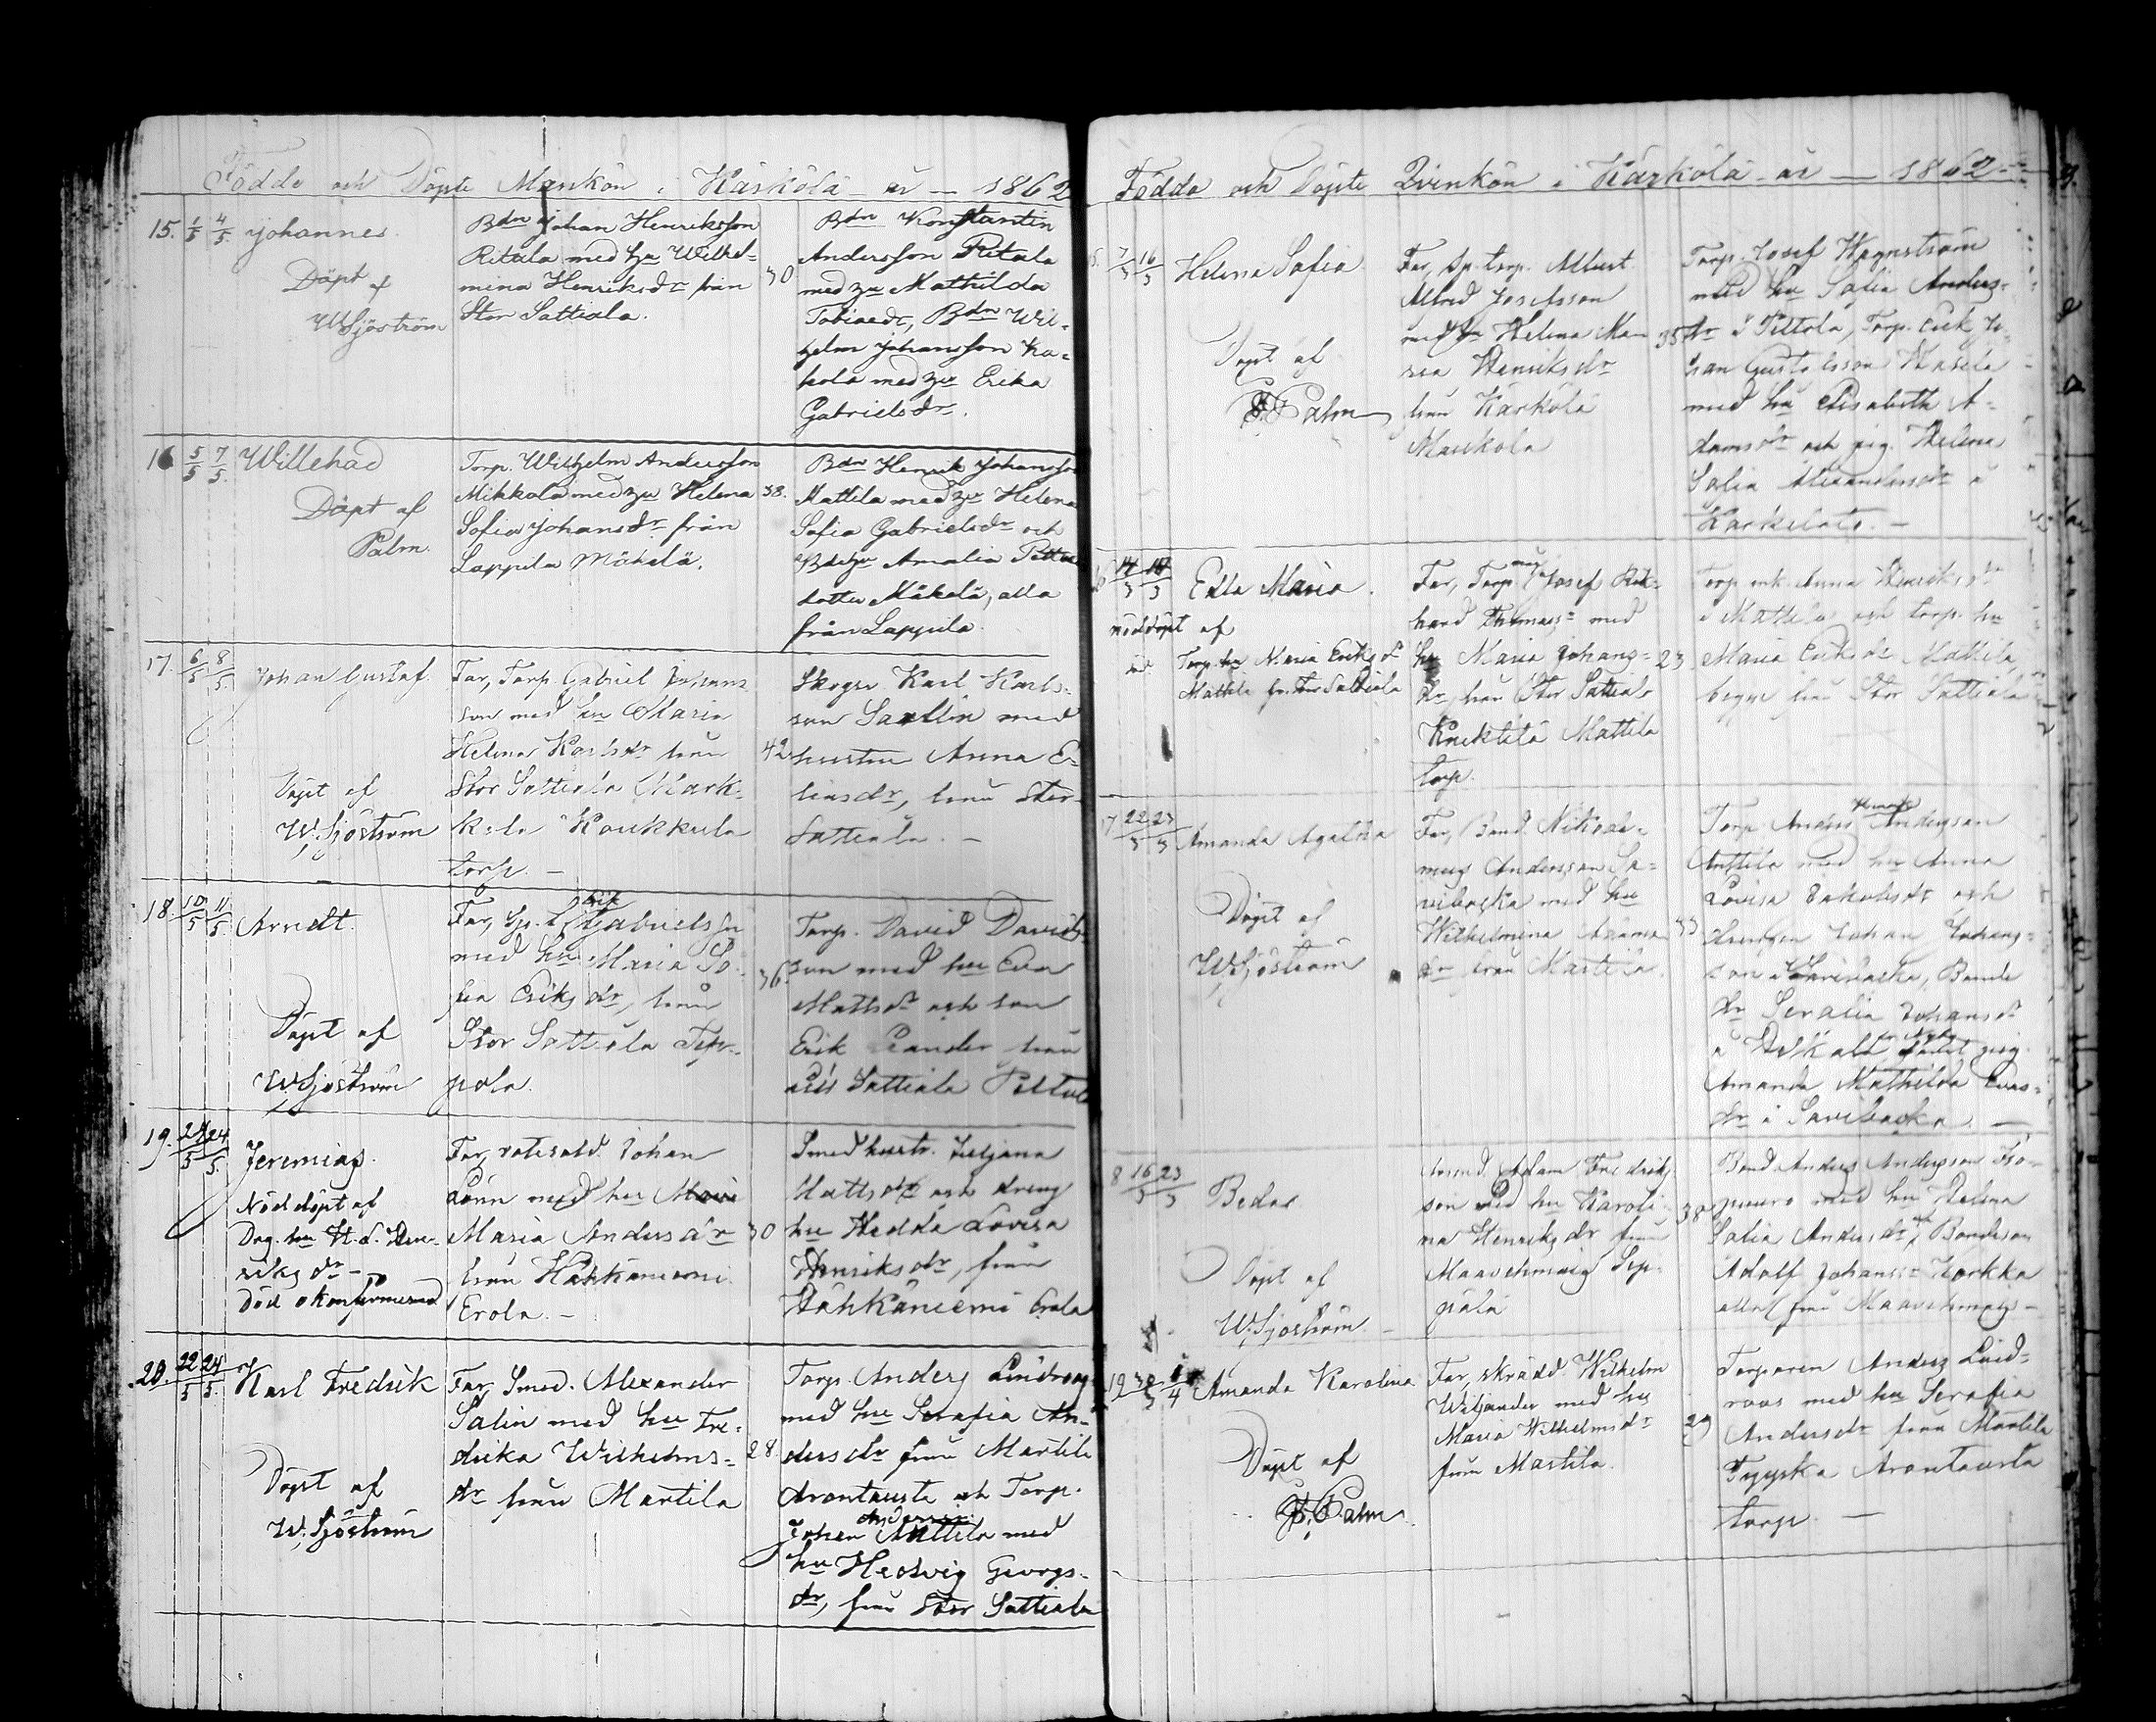 Födde och Döpte Mankön i Kärkölä år — 1862
15. 1/5 4/5. Johannes.
Döpt af
WSjöström
Bdn Johan Henriksson
Ritala med hu Wilhel-
mina Henriksdr från
Stor Sattiala.
30
Bdn Konstantin
Andersson Ritala
med hu Mathilda
Tobiaedr, Bdn Wil-
helm Johansson
med hu Erika
Gabrielsdr.
16 5/5 7/5. Willehad
Döpt af
Palm.
Torp. Wilhelm Andersson
Mikkola med hu Helena
Sofia Johansdr från
Lappila Mäkelä.
38.
Bdn Henrik Johansson
Mattila med hu Helena
Sofia Gabrielsdr och
Bdehu Amalia
dotter Mäkelä, alla
från Lappila
17. 6/5 8/5. Johan Gustaf.
Döpt af
W. Sjöström
Far, Torp Gabriel Johans
son med hu Maria
Helena Karlsdr från
Stor Sattiala Mark-
kola Koukkula
torp. —
42
Skogsv. Karl Karls-
son Saxlin med
hustru Anna E-
liasdr, från Stor-
Sattiala. —
18. 10/5 11/5. Arndt.
Döpt af
W. Sjöström
Far, Sp. t. Erik Gabrielsson
med hu Maria So-
fia Eriksdr, från
Stor Sattiala Tep-
pola.
36.
Torp. David Davids-
son med hu Eva
Mattsdr och son
Erik Leander från
Sattiala Pelttola
19. 24/5 24/5. Jeremias.
Nöddöpt af
Drg. hu H. L. Hen-
riksdr —
Död okonfirmerad
Far, rotesold. Johan
Lönn med hu
Maria Andersdr
från Hähkäniemi
Erola. —
30
Smedhustr. Juljana
Mattsdr och dreng
hu Hedda Lovisa
Henriksdr, från
Hähkäniemi Erola
20. 22/5 24/5. Karl Fredrik
Döpt af
W. Sjöström
Far, Smed. Alexander
Salin med hu Fre-
drika Wilhelms-
dr från Martila
28.
Torp. Anders Lindroos
med hu Serafia An-
dersdr från Martila
Arontausta och Torp.
Johan Andersson Anttila med
hu Hedvig Georgs-
dr, från Stor Sattiala
Födda och Döpte Qvinkön i Kärkölä år — 1862.
7/3 16/3 Helena Sofia
Döpt af
F. Palm
Far, sp. torp. Albert
Alfred Josefsson
med hu Helena Ma-
ria Henriksdr
från Kärkölä
Maukola
35
Torp. Josef Wegnström
med hu Sofia Anders-
dr i Pittola, Torp. Erik Jo-
han Gustafsson Hasela
med hu Elisabeth A-
damsdr och pig. Helena
Sofia Alexandersdr i
Karkelato. —
14/3 Edla Maria.
nöddöpt af
Torp. hu Maria Eriksdr
Mattila fr. Stor Sattiala
Far, Torp. måg Josef Rik-
hard Thomass= med
hu Maria Johans-
dr, från Stor Sattiala
Knektilä Mattila
torp.
23
Torp. enk. Anna Henriksdr
i Mattila och torp. hu
Maria Eriksdr Mattila,
begge från Stor Sattiala
17 22/3 23/3 Amanda Agatha
Döpt af
W. Sjöström
Far, Bond. Nikode-
mus Andersson Sa-
vibacka med hu
Wilhelmina Adams-
dr från Martila.
33
Torp Anders Anderson
Anttila med hu Anna
Lovisa Jakobsdr och
drengen Johan Johans-
son i Savibacka, Bonde
dr Serafia Johansdr
i Ylikala samt pig
Amanda Mathilda Evas-
dr i Savibacka. —
8 16/3 23/3 Bedas
Döpt af
W. Sjöström. —
Adam Fredriks
son med hu Karoli-
na Henriksdr från
Maavehmais Sep-
pälä
38
Bond. Anders Andersson Iso-
puuro med hu Helena
Sofia Andersdr, Bondeson
Adolf Johanss= Korkka
alla från Maavehmais —
19 30/3 /4 Amanda Karolina
Döpt af
F. Palm.
Far, skrädd. Wilhelm
Wiljander med hu
Maria Wilhelmsdr
från Martila.
29
Torparen Anders Lind-
roos med hu Serafia
Andersdr från Martila
Tyyska Arontausta
torp. —